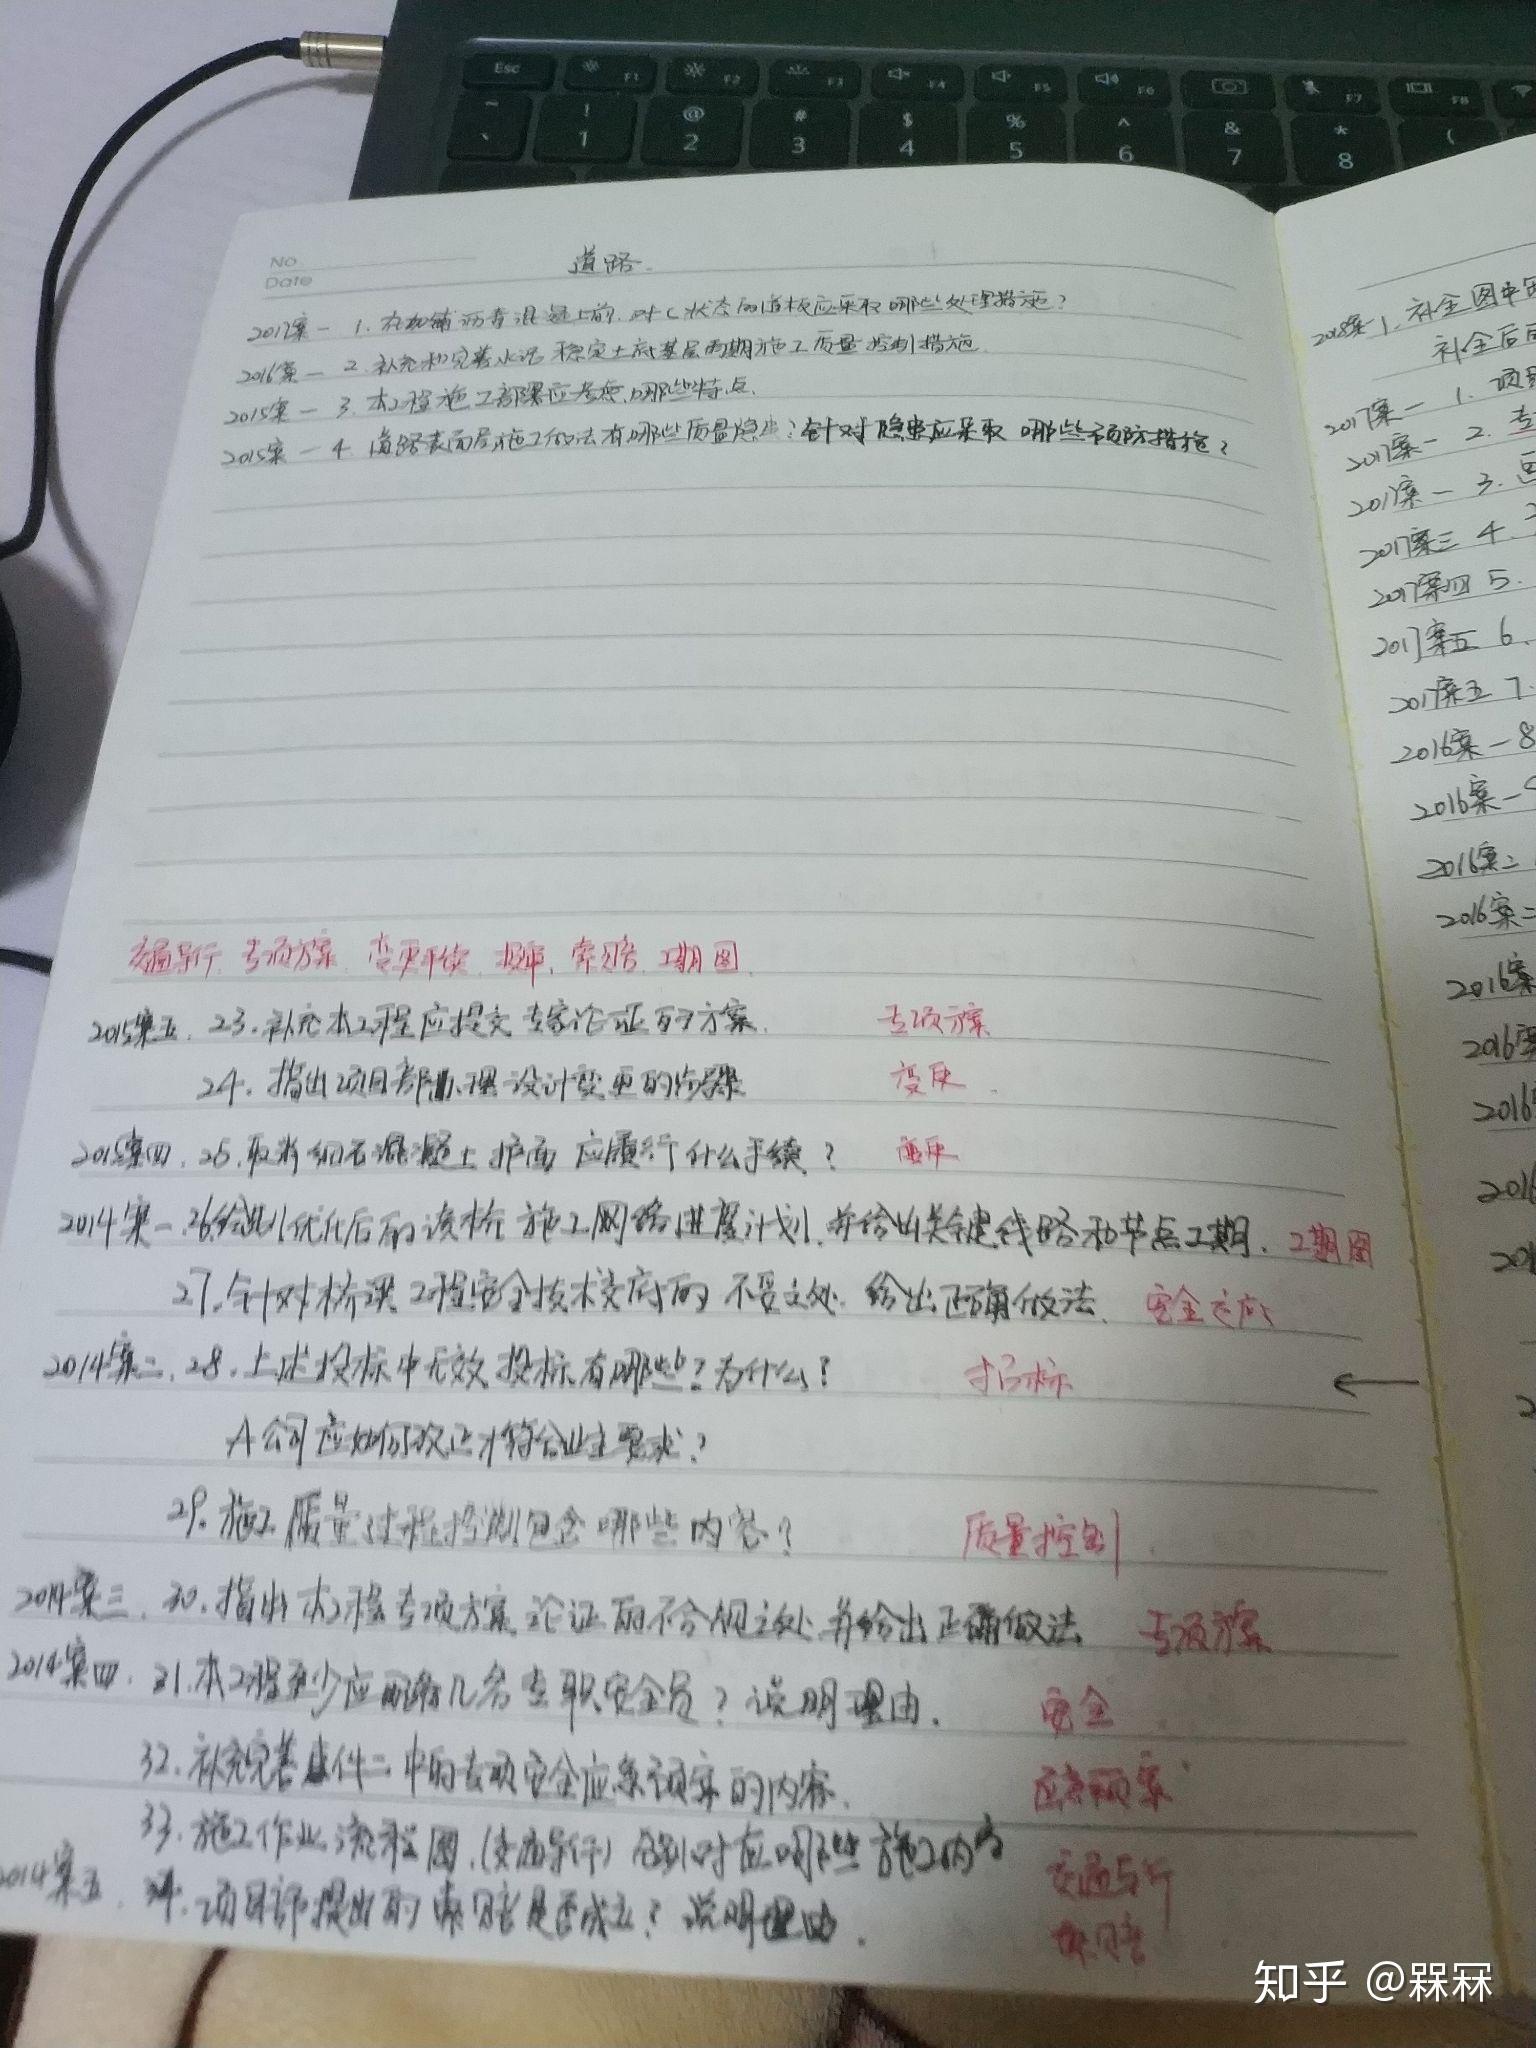 Esc F1 F2 F3 F4 F5 F6 F7 F8
~ ` ! 1 @ 2 # 3 $ 4 % 5 ^ 6 & 7 * 8 (
No
Date
道路.
2017案一 1. 在加铺沥青混凝土前, 对C状态的道板应采取哪些处理措施?
2016案一 2. 补充和完善水泥稳定土底基层雨期施工质量控制措施.
2015案一 3. 本工程施工部署应考虑哪些特点.
2015案一 4. 道路表面层施工做法有哪些质量隐患? 针对隐患应采取哪些预防措施?
交通导行 专项方案 变更手续 投标, 索赔 工期图
2015案五. 23. 补充本工程应提交专家论证的方案. 专项方案
24. 指出项目部办理设计变更的步骤 变更
2015案四. 25. 取消细石混凝土护面应履行什么手续? 变更
2014案一. 26. 绘制优化后的该桥施工网络进度计划, 并给出关键线路和节点工期. 工期图
27. 针对桥梁工程安全技术交底的不妥之处 给出正确做法. 安全交底
2014案二. 28. 上述投标中无效投标有哪些? 为什么? 招标
A公司应如何改正才符合业主要求?
29. 施工质量过程控制包含哪些内容? 质量控制
2014案三. 30. 指出本工程专项方案论证的不合规之处并给出正确做法 专项方案
2014案四. 31. 本工程至少应配备几名专职安全员? 说明理由. 安全
32. 补充完善事件二中的专项安全应急预案的内容. 应急预案
33. 施工作业流程图, (交通导行) 分别对应哪些施工内容 交通导行
2014案五. 34. 项目部提出的索赔是否成立? 说明理由. 索赔
2018案一 1. 补全图中
补全后
2017案一 1. 项
2017案一 2. 专
2017案一 3.
2017案三 4.
2017案四 5.
2017案五 6.
2017案五 7.
2016案一 8
2016案一
2016案二
2016案二
2016案
2016案
2016
2016
2016
201
知乎 @槑冧